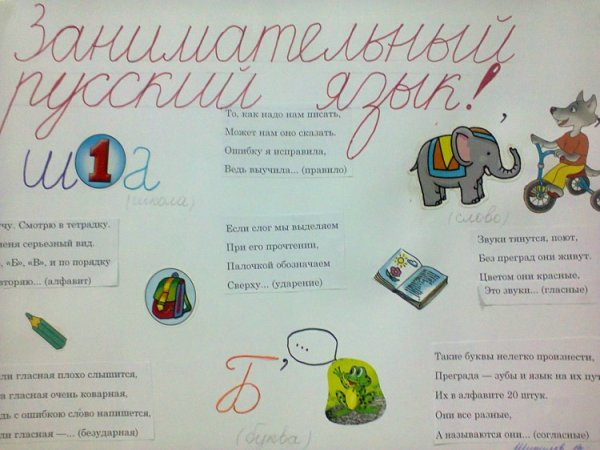 Занимательный
русский язык!
То, как надо нам писать,
Может нам оно сказать.
Ошибку я исправила,
Ведь выучила... (правило)
ш1а
(школа)
,
(слово)
чу. Смотрю в тетрадку.
серьезный вид.
«Б», «В», и по порядку
(алфавит)
Если слог мы выделяем
При его прочтении,
Палочкой обозначаем
Сверху... (ударение)
Звуки тянутся, поют,
Без преград они живут.
Цветом они красные,
Это звуки... (гласные)
гласная плохо слышится,
гласная очень коварная,
с ошибкою слово напишется,
гласная —... (безударная)
Б,
...
(буква)
Такие буквы нелегко произнести,
Преграда — зубы и язык на их
Их в алфавите 20 штук.
Они все разные,
А называются они... (согласные)